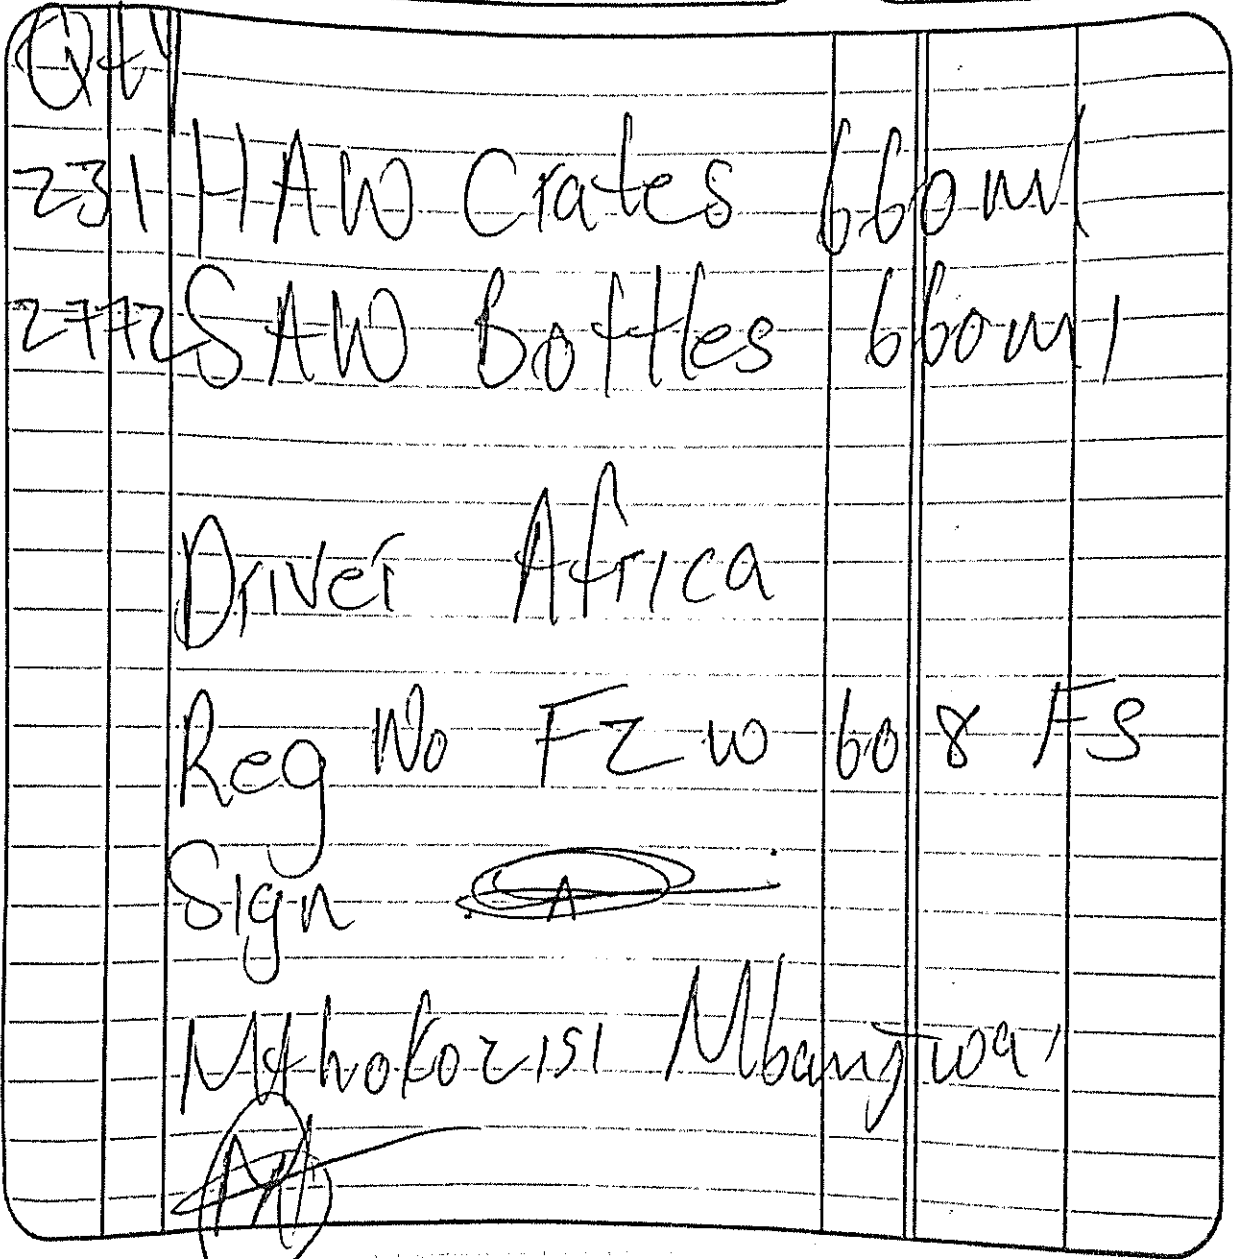 Qty
231 HAW Crates 660ml
2772 SAW Bottles 660ml
Driver Africa
Reg No FZW 608 FS
Sign
Mthokozisi Mbangwa